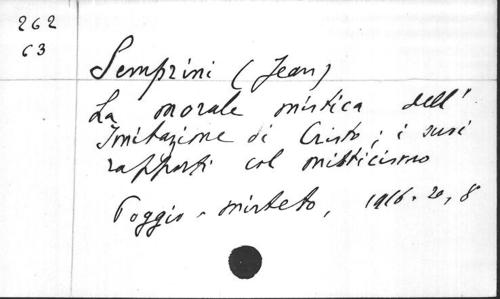 262
63
Semprini (Jean)
La morale mistica dell'
Imitazione di Cristo; i suoi
rapporti col misticismo
Poggio-mirteto, 1916. 20, 8°